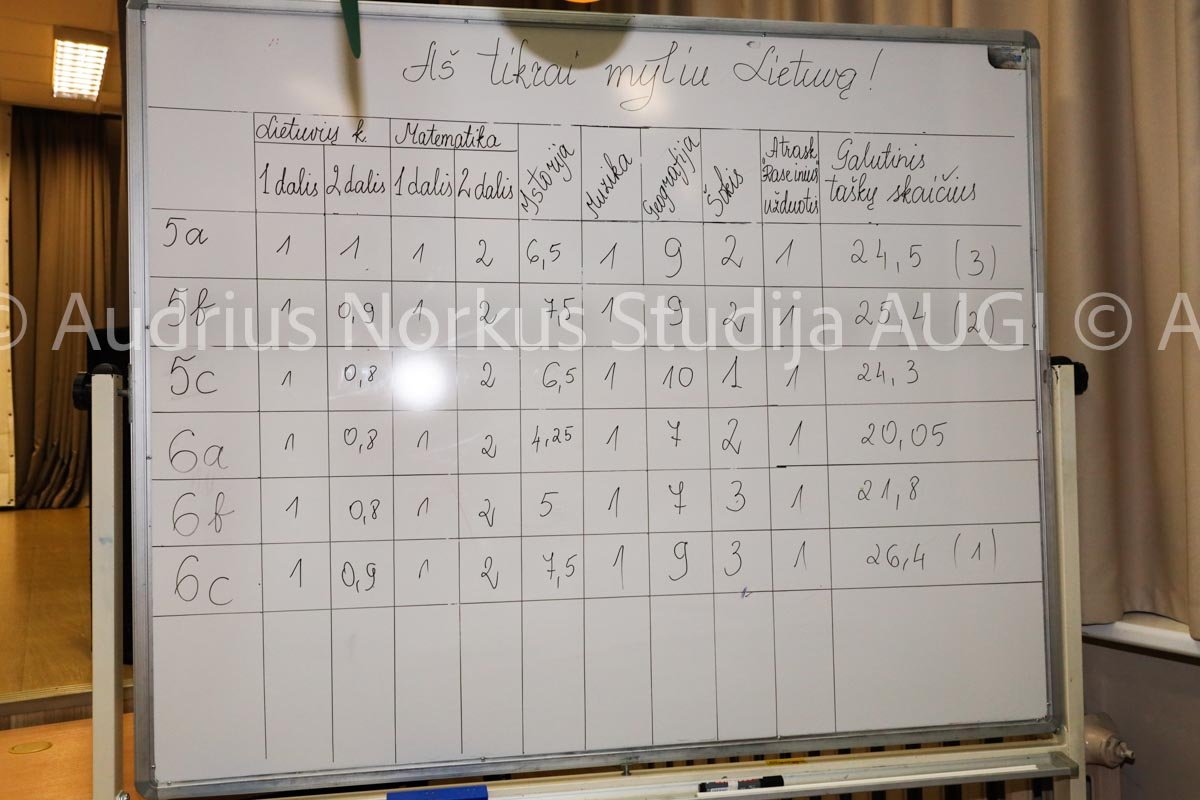 Aš tikrai myliu Lietuvą!
Lietuvių k. Matematika Istorija Muzika Geografija Šokis Atrask Raseinius užduotis Galutinis taškų skaičius
1 dalis 2 dalis 1 dalis 2 dalis
5a 1 1 1 2 6,5 1 9 2 1 24,5 (3)
5b 1 0,9 1 2 7,5 1 9 2 1 25,4 (2)
© Audrius Norkus Studija AUGI © A
5c 1 0,8 2 6,5 1 10 1 1 24,3
6a 1 0,8 1 2 4,25 1 7 2 1 20,05
6b 1 0,8 1 2 5 1 7 3 1 21,8
6c 1 0,9 1 2 7,5 1 9 3 1 26,4 (1)